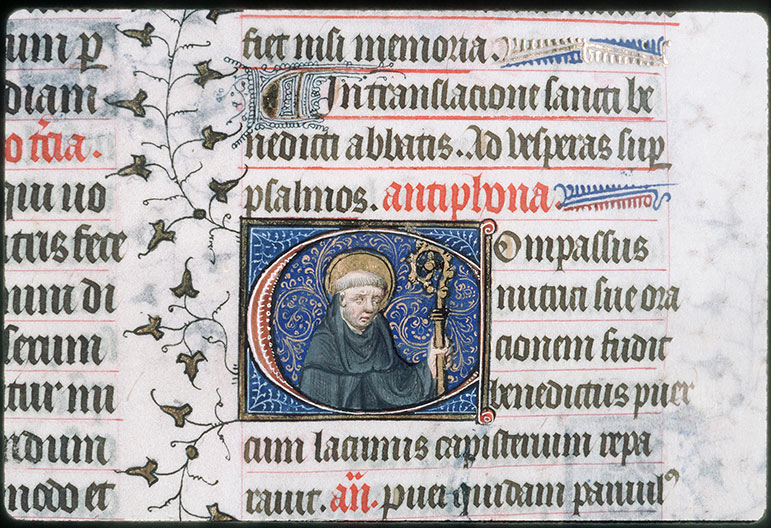 um p
diam
o tcia.
qui uo
tris fece
num di
serum
tur mi
edum
modo et
fiet nisi memoria.
In translacione sancti be
nedicti abbatis. Ad vesperas sup
psalmos. antiphona.
Compassus
nutrici sue ora
cionem fudit
benedictus puer
cum lacrimis capisterium repa
rauit. an. puer quidam paruul